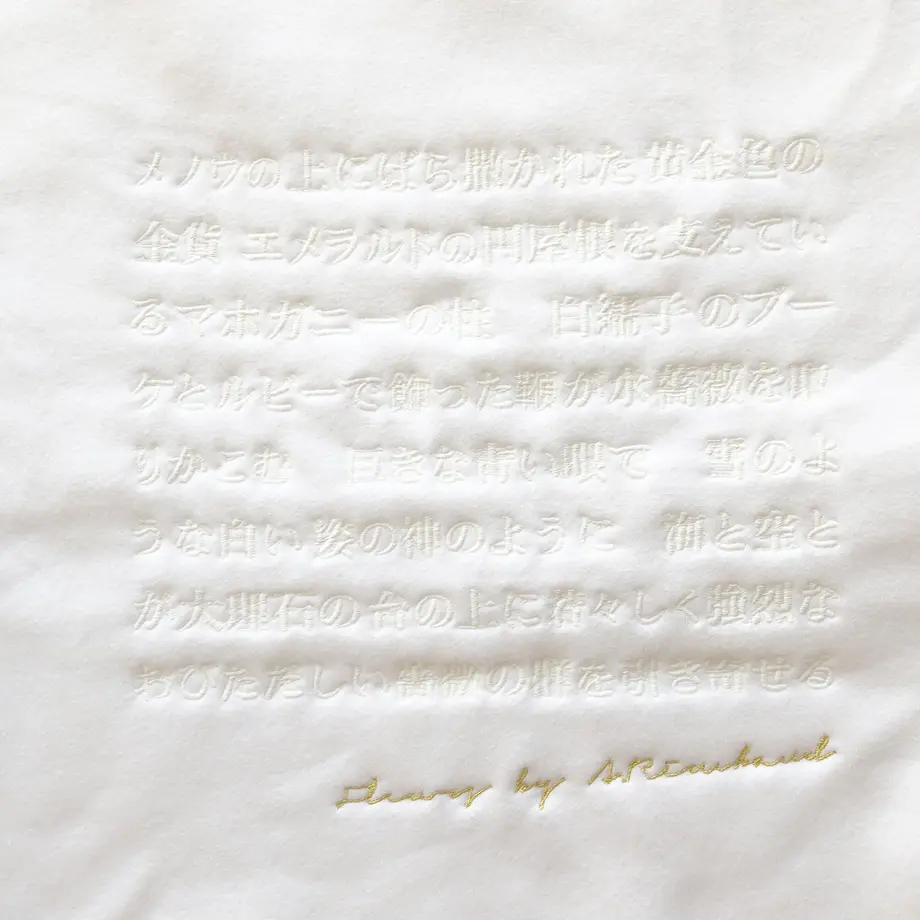 メノウの上にばら撒かれた黄金色の
金貨 エメラルドの円屋根を支えてい
るマホガニーの柱　白繻子のブー
ケとルビーで飾った鞭が水薔薇を取
りかこむ　巨きな青い眼で　雪のよ
うな白い姿の神のように　海と空と
が大理石の台の上に若々しく強烈な
おびただしい薔薇の群を引き寄せる
by A Rimbaud